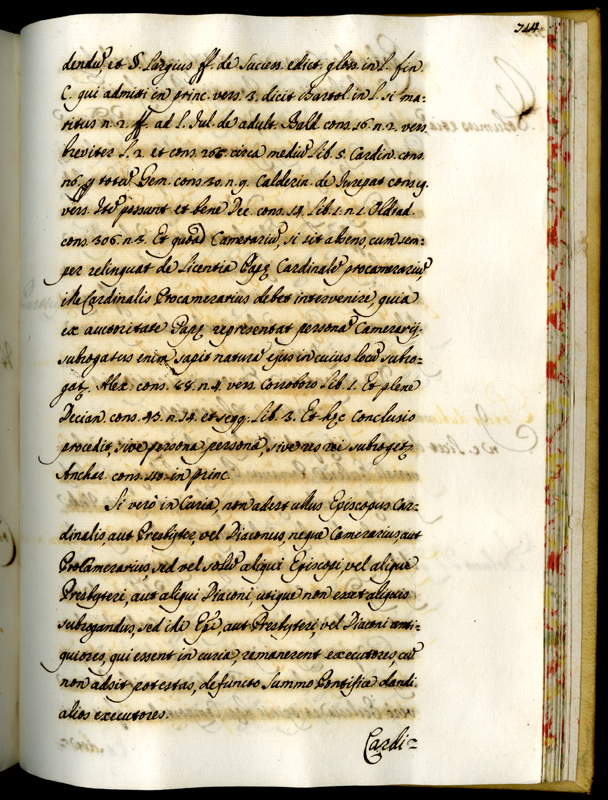 714
dendũ, et §. Largius ff. de Success. edict. gloss. in l. fin.
C. qui admitti in princ. vers. 3. dicit Bartol. in l. si ma:
ritus n. 2. ff. ad l. Jul. de adult. Bald. cons. 16. n. 2. vers.
breviter l. 2. et cons. 266. circa mediũ lib. 5. Cardin. cons.
totũ Gem. cons. 30. n. 9. Calderin. de
vers. Itẽ possunt et bene Dec. cons. 14. lib. 1. n. 1. Oldrad.
cons. 306. n. 2. Et quoad Camerariũ, si sit absens, cum sem:
per relinquat de licentia Papę Cardinalẽ procamerariũ,
ille Cardinalis Procamerarius debet intervenire, quia
ex autoritate Papę representat personã Camerarij.
subrogatus enim sapit naturã ejus in cuius locũ subro:
gat. Alex. cons. 88. n. 4. vers. Corroboro lib. 1. Et plene
Decian. cons. 43. n. 14. et seqq. lib. 3. Et hęc Conclusio
procedit, sive persona personę, sive res rei subroget.
Anchar. cons. 40. in princ.
Si verò in Curia, non adest ullus Episcopus Car:
dinalis, aut Presbyter, vel Diaconus, neque Camerarius aut
ProCamerarius, sed vel solũ aliqui Episcopi, vel aliqui
Presbyteri, aut aliqui Diaconi, utique non erit aliquis
subrogandus, sed illi Epĩ, aut Presbyteri, vel Diaconi anti:
quiores, qui essent in curia, remanerent executores, cũ
non adsit potestas, defuncto Summo Pontifice dandi
alios executores.
Cardi: